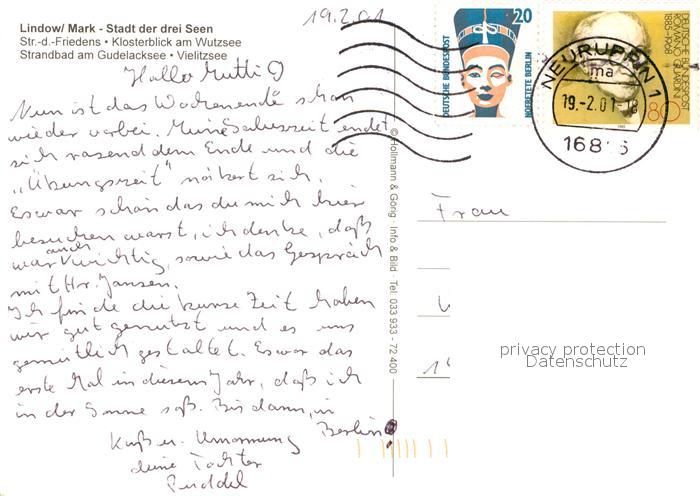 Lindow/ Mark - Stadt der drei Seen
Str.-d.-Friedens • Klosterblick am Wutzsee
Strandbad am Gudelacksee • Vielitzsee
19.2.01
Hallo Mutti
Nun ist das Wochenende schon
wieder vorbei. Meine endet
sich rasend dem Ende und die
„Übungszeit" nähert sich.
Es war schön das du mich hier
besuchen warst, ich denke, daß
war auch wichtig, sowie das Gespräch
mit Hr. Jansen.
Ich finde die kurze Zeit haben
wir gut genutzt und es uns
gemütlich gestaltet. Es war das
erste Mal in diesem Jahr, daß ich
in der Sonne saß. Bis dann, in
Berlin!
Kuß u. Umarmung
deine Tochter
DEUTSCHE BUNDESPOST
20
NOFRETETE BERLIN
DEUTSCHE BUNDESPOST
ROMANO GUARDINI
1885-1968
80
NEURUPPIN 1
ma
19.-2.01-18
168 6
© Hollmann & Göng · Info & Bild · Tel: 033 933 - 72 400
Frau
privacy protection
Datenschutz